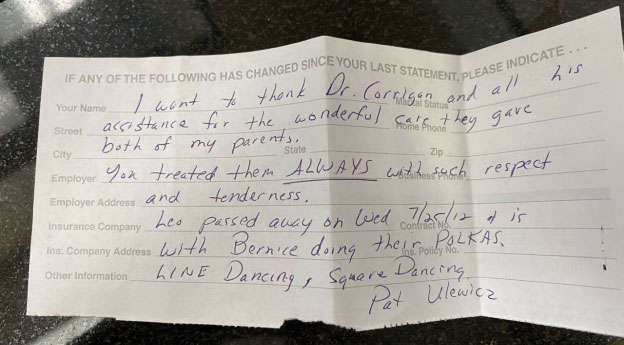 IF ANY OF THE FOLLOWING HAS CHANGED SINCE YOUR LAST STATEMENT, PLEASE INDICATE . . .
Your Name I want to thank Dr. Corrigan Marital Status and all his
Street assistance for the wonderful care they gave
Home Phone
City both of my parents. State Zip
Employer You treated them ALWAYS with such respect
Business Phone
Employer Address and tenderness.
Insurance Company Leo passed away on Wed 7/25/12 & is
Contract No.
Ins. Company Address with Bernice doing their POLKAS,
Ins. Policy No.
Other Information LINE Dancing, Square Dancing
Pat Ulewicz